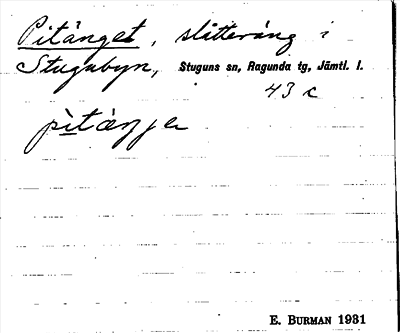 Pitänget, slåtteräng i
Stugubyn, Stuguns sn, Ragunda tg, Jämtl. l.
43 c
E. BURMAN 1931